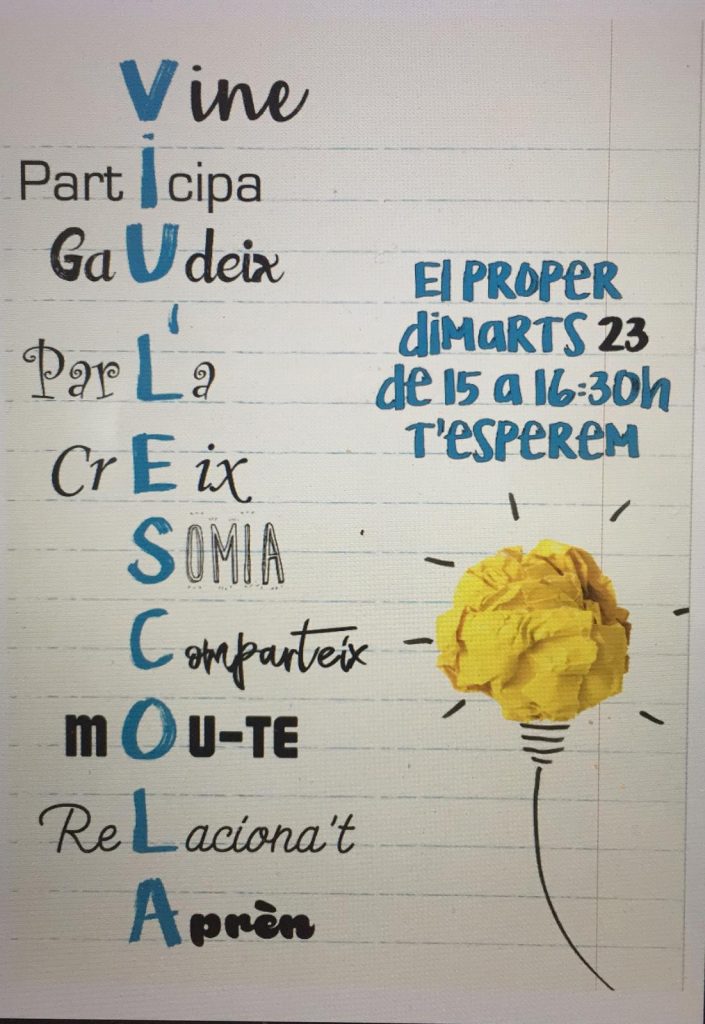 Vine
Participa
GaUdeix
Par L'a
CrEix
SOMIA
Comparteix
mOU-TE
ReLaciona't
Aprèn
El PROPER
diMaRTS 23
de 15 a 16:30h
T'eSPeReM